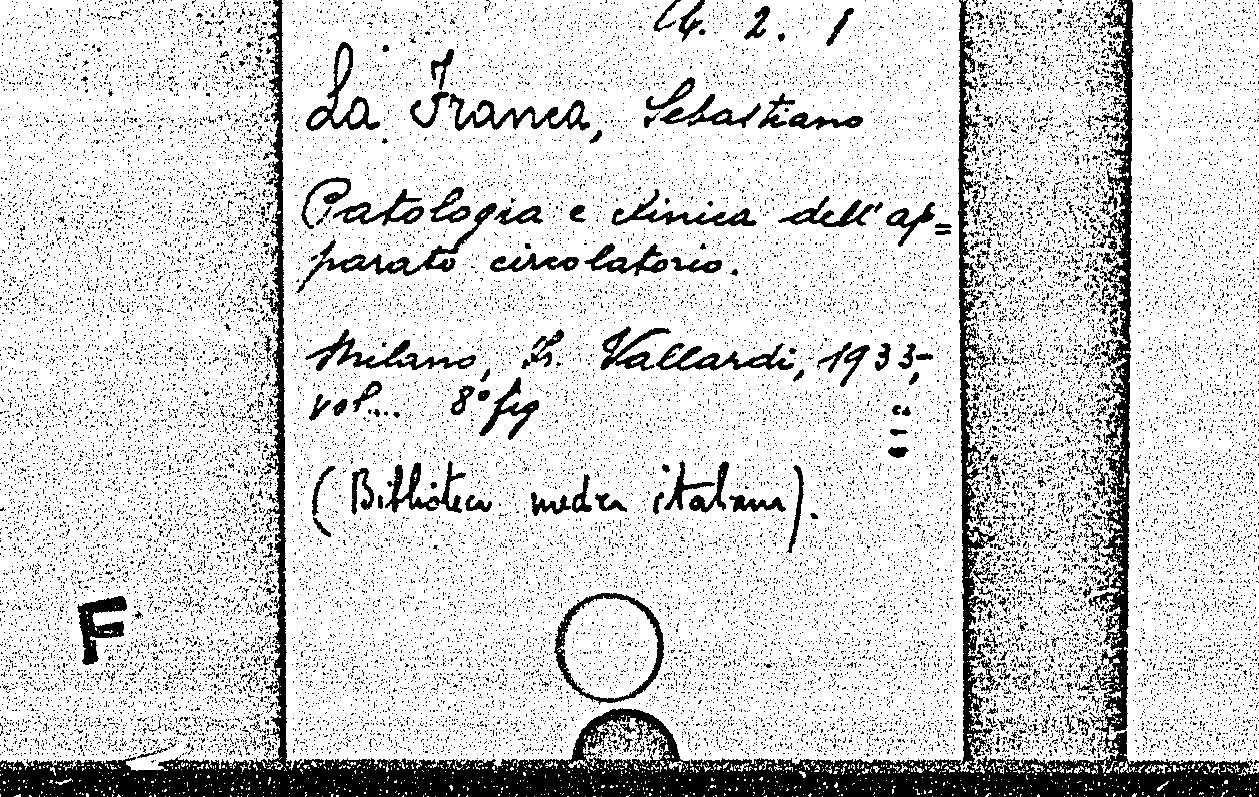 2. 1
La Franca, Sebastiano
Patologia e clinica dell'ap=
parato circolatorio.
Milano, F. Vallardi, 1933,-
vol... 8° fig
(Biblioteca medica italiana).
F